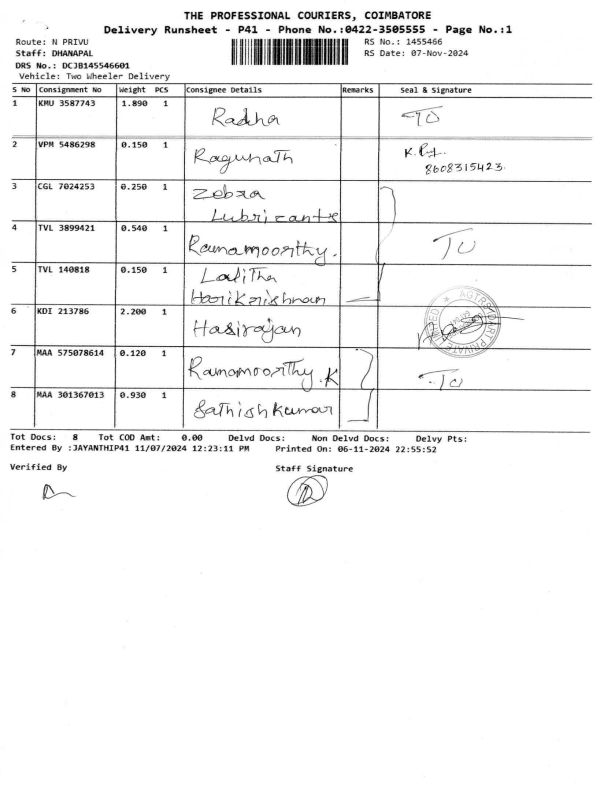 THE PROFESSIONAL COURIERS, COIMBATORE
Delivery Runsheet - P41 - Phone No.:0422-3505555 - Page No.:1
Route: N PRIVU RS No.: 1455466
Staff: DHANAPAL RS Date: 07-Nov-2024
DRS No.: DCJB145546601
Vehicle: Two Wheeler Delivery
S No Consignment No Weight PCS Consignee Details Remarks Seal & Signature
1 KMU 3587743 1.890 1 Radha TO
2 VPM 5486298 0.150 1 Ragunath
8608315423
3 CGL 7024253 0.250 1 Zebra
Lubricants
4 TVL 3899421 0.540 1 Ramamoorthy. TO
5 TVL 140818 0.150 1 Lalitha
Harikrishnan
6 KDI 213786 2.200 1 Hasirajan
7 MAA 575078614 0.120 1 Ramamoorthy.K TO
8 MAA 301367013 0.930 1 Sathishkumar
Tot Docs: 8 Tot COD Amt: 0.00 Delvd Docs: Non Delvd Docs: Delvy Pts:
Entered By :JAYANTHIP41 11/07/2024 12:23:11 PM Printed On: 06-11-2024 22:55:52
Verified By Staff Signature